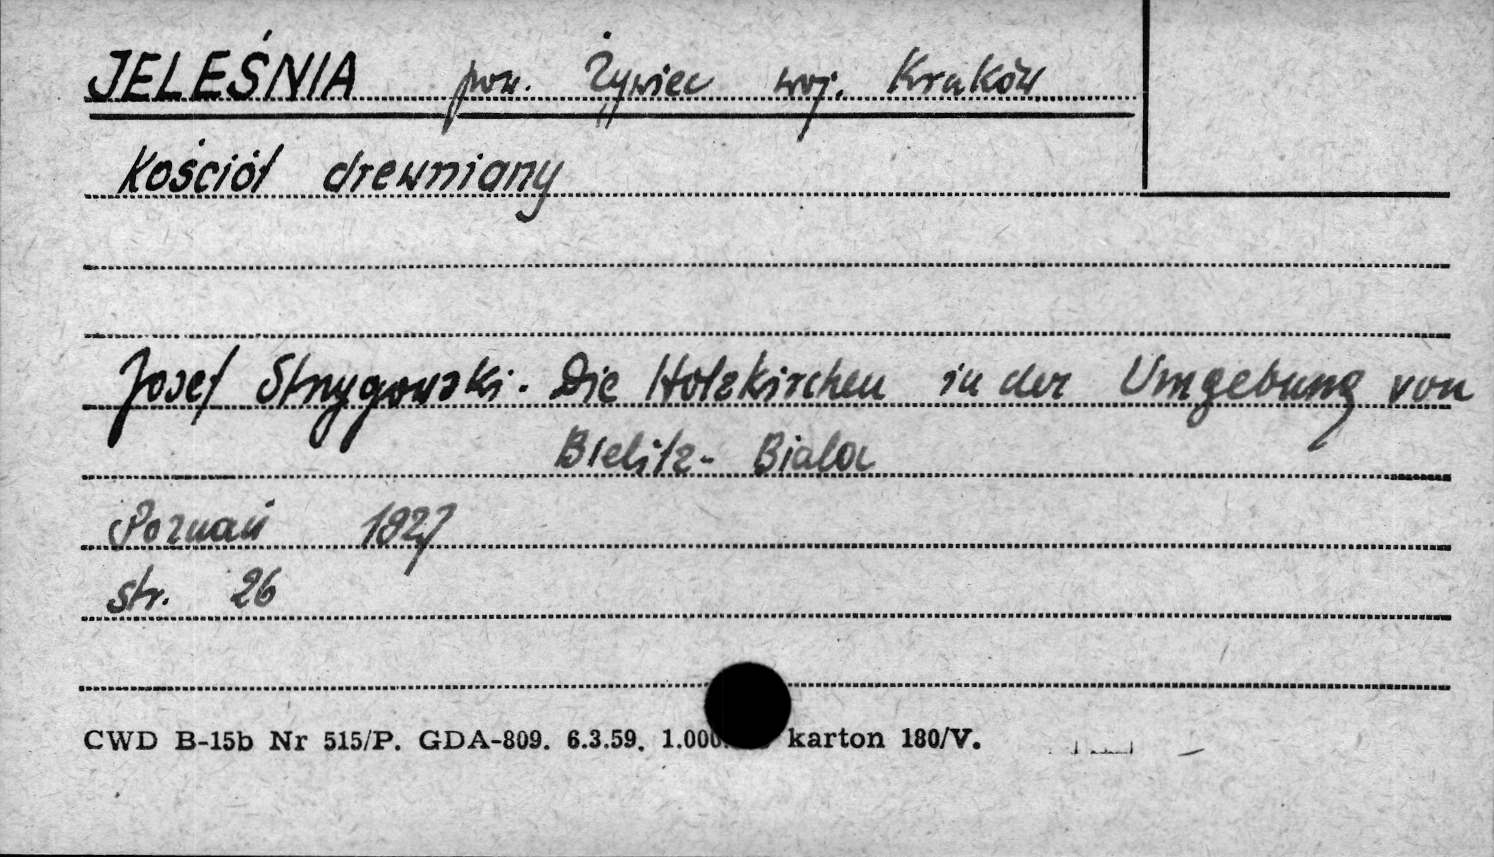 JELEŚNIA pow. Żywiec woj. Kraków
Kościół drewniany
Josef Strzygowski. Die Holzkirchen in der Umgebung von
Bielitz- Biala
Poznań 1827
str. 26
CWD B-15b Nr 515/P. GDA-809. 6.3.59. 1.000. karton 180/V.